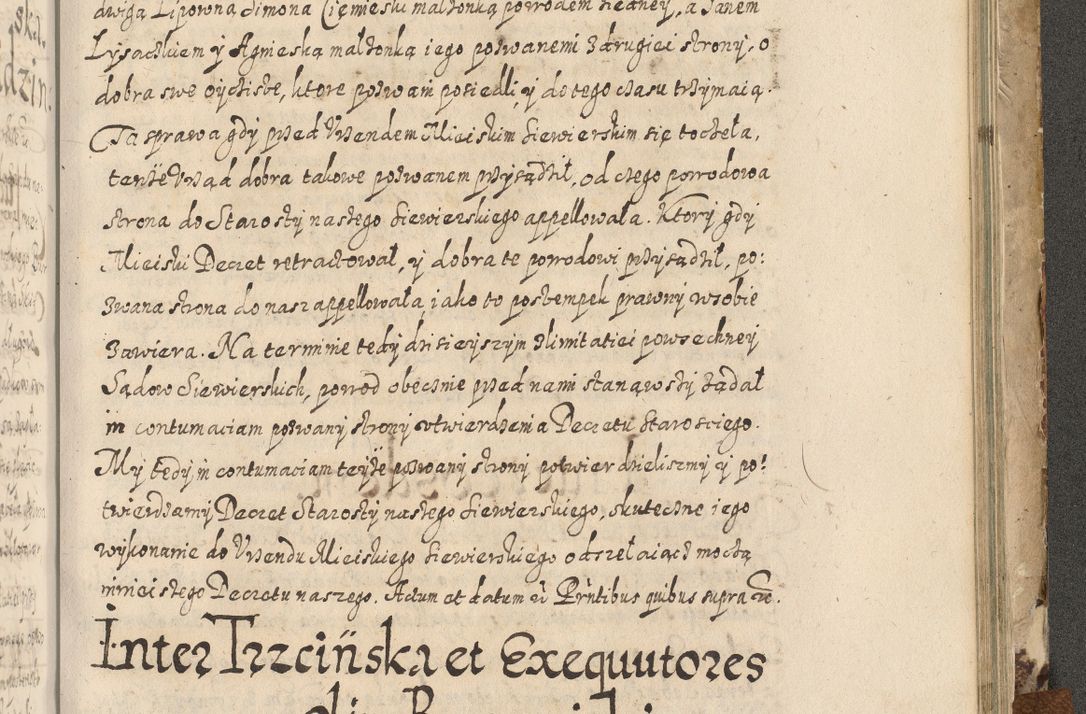 dwigą Liporona Simona Ciemieski małżonką powodem iedney, a Janem
Lysacżkiem y Agnieską małżonką iego pozwanemi z drugiei strony, o
dobra swe oycziste, ktore pozwani posiedli, y do tego czasu trzymaią.
Ta sprawa gdy przed Vrzendem Mieiskim Siewierskim się tocżeła,
tenże Vrząd dobra takowe pozwanem przysądził, od czego powodowa
strona do Starosty naszego Siewierskiego appellowała. Ktory gdy
Mieiski Decret retractował, y dobra te powodowi przysądził, po:
zwana strona do nasz appellowała, iako to postempek prawny w sobie
zawiera. Na terminie tedy dzisieyszym z limitatiei powszechney
Sądow Siewierskich, powod obecznie przed nami stanąwszy żądał
in contumaciam pozwany strony vtwierdzenia Decretu Starosciego.
My tedy in contumaciam teyże pozwany strony potwierdzieliszmy y po:
twierdzamy Decret Starosty naszego Siewierskiego, skuteczne iego
wykonanie do Vrzendu Mieiskiego Siewierskiego odszełaiącz moczą
ninieiszego Decretu naszego. Actum et datum Prntibus quibus supra
Inter Trzcińską et Exequutores